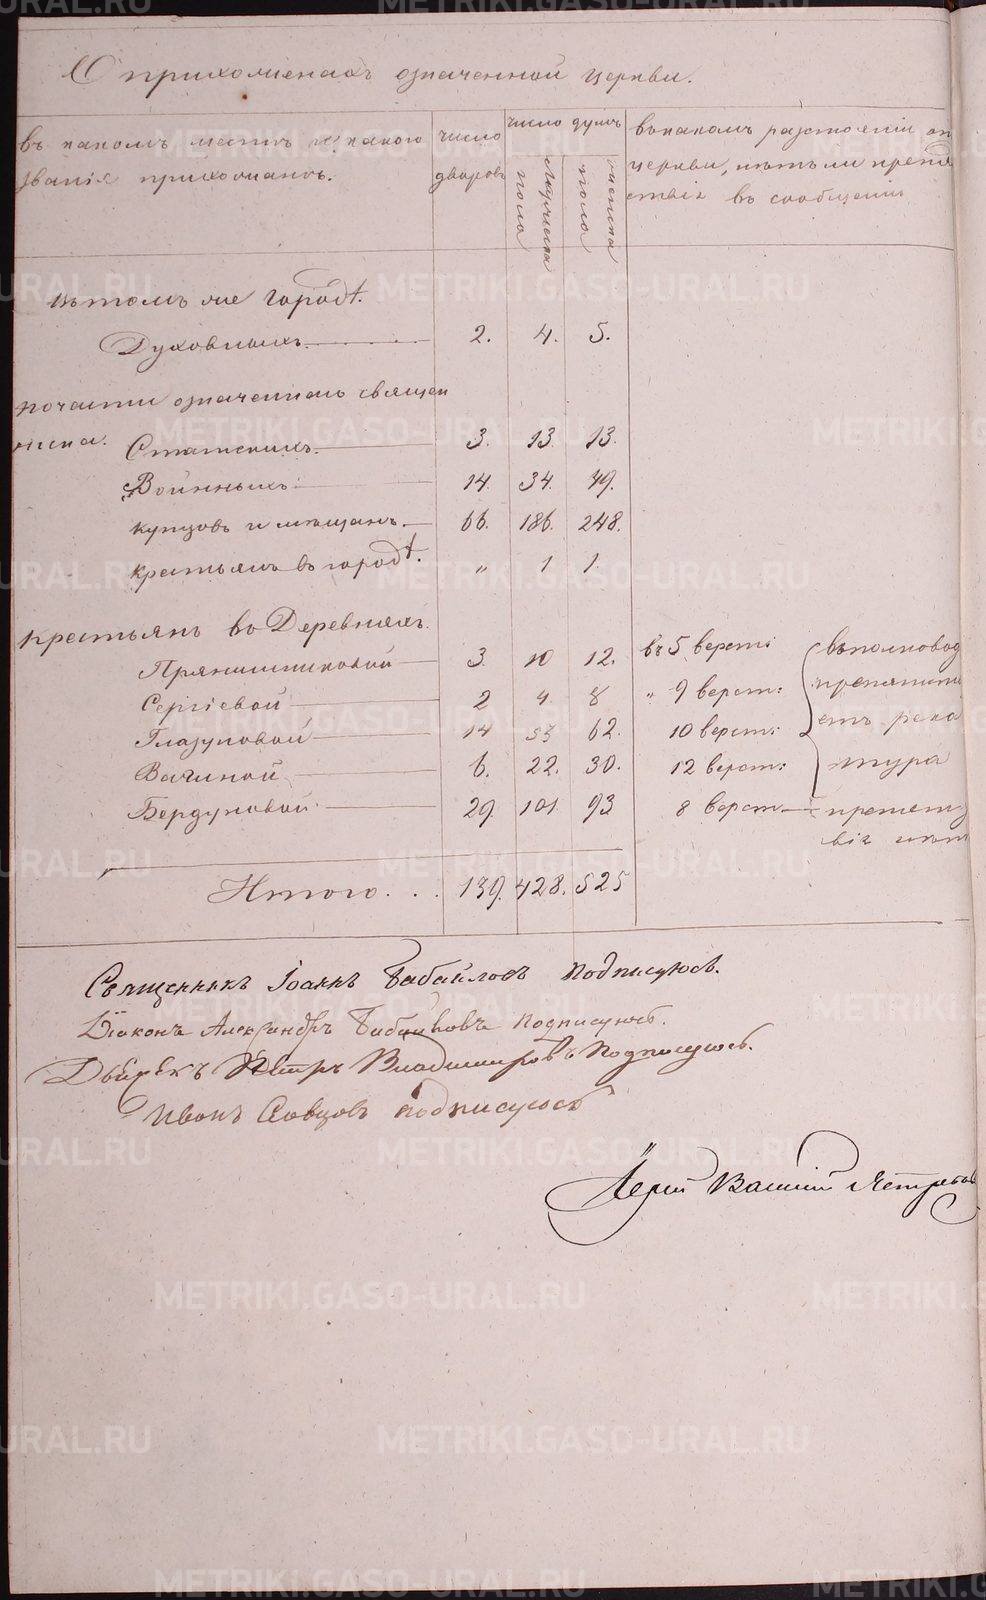 О прихожанахъ означенной церкви.
въ какомъ мѣстѣ и какого
званія прихожане.
число
дворовъ
число душъ
мужеска
пола
женска
пола
въ какомъ разстояніи от
церкви, нѣтъ ли препят
ствія въ сообщеніи
въ томъ же городѣ.
Духовныхъ 2. 4. 5.
по части означеннаго священ
ника.
Статскихъ 3. 13. 13.
Военныхъ 14. 34. 49.
купцовъ и мѣщанъ. 66. 186. 248.
крестьянъ въ городѣ. „ 1 1.
крестьянъ въ Деревняхъ.
Прянишниковой 3. 10 12. въ 5 верст:
Сергіевой 2 4. 8 „ 9 верст:
Глазуновой 14 53 62. 10 верст:
Вагиной 6. 22. 30. 12 верст:
Бердуновой 29. 101. 93 8 верст.
въ полновод
препятств
етъ река
тура
препят
вія нѣт
Итого . . . 139. 428. 525
Священникъ Іоаннъ Бабайловъ подписуюсь.
Діаконъ Александръ Бабайловъ подписуюсь.
Дьячекъ Петръ Владимировъ Подписуюсь.
Иванъ Словцовъ подписуюсь
Іерей Василій
METRIKI.GASO-URAL.RU